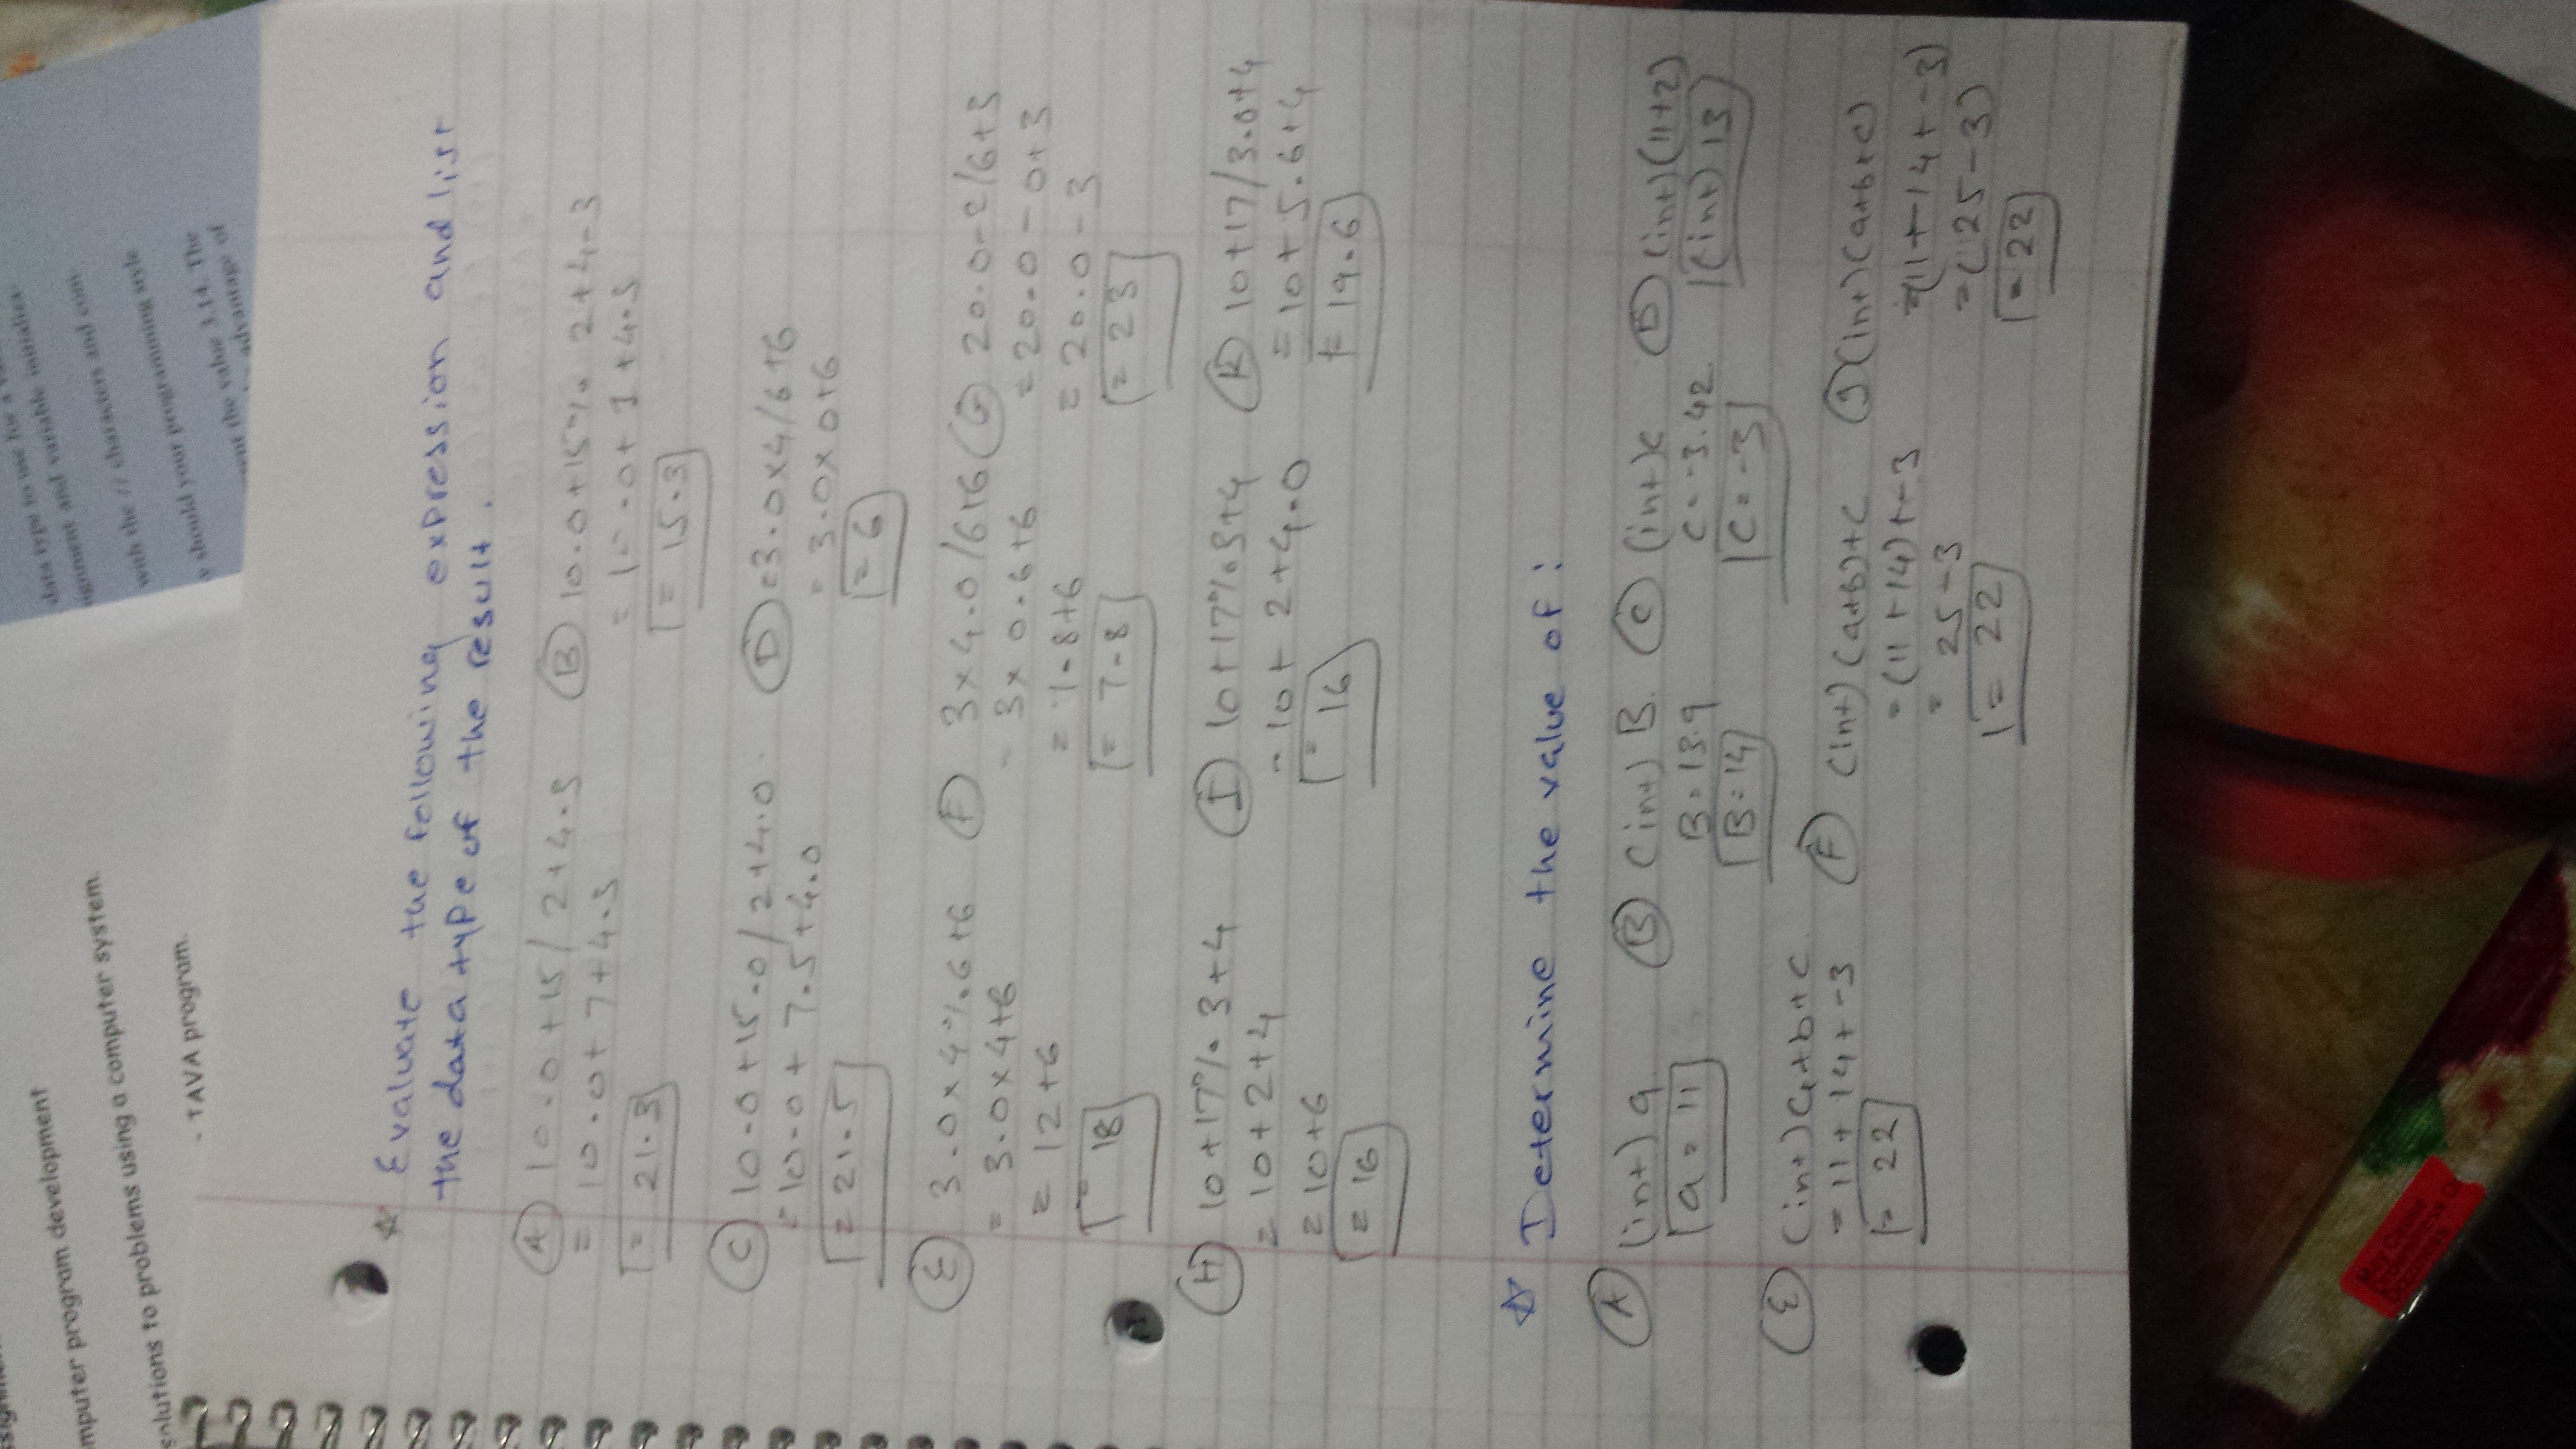 mputer program development
solutions to problems using a computer system.
- JAVA program.
data type to use for a
ignment and variable initializa-
with the // characters and com-
y should your programming style
sent the value 3.14. The
advantage of
☆ Evaluate the following expression and list
the data type of the result.
A 10.0+15/2+4.3
= 10.0+7+4.3
= 21.3
B 10.0+15% 2+4.3
= 10.0+1+4.3
= 15.3
C 10.0+15.0/2+4.0
= 10.0+7.5+4.0
= 21.5
D =3.0x4/6+6
= 3.0x0+6
= 6
E 3.0x4%6+6
= 3.0x4+6
= 12+6
= 18
F 3x4.0/6+6
= 3x0.6+6
= 1.8+6
= 7.8
G 20.0-2/6+3
=20.0-0+3
= 20.0-3
= 23
H 10+17%3+4
= 10+2+4
= 10+6
= 16
I 10+17%3+4
= 10+2+4.0
= 16
K 10+17/3.0+4
= 10+5.6+4
= 19.6
☆ Determine the value of:
A (int) a
a = 11
B (int) B.
B = 13.9
B = 14
C (int)c
C = -3.42
C = -3
D (int)(11+2)
(int) 13
E (int)a+b+c
= 11+14+-3
= 22
F (int)(a+b)+c
= (11+14)+-3
= 25-3
= 22
G (int)(a+b+c)
=(11+14+-3)
=(25-3)
= 22
May Cause
Drowsiness Or
Dizziness